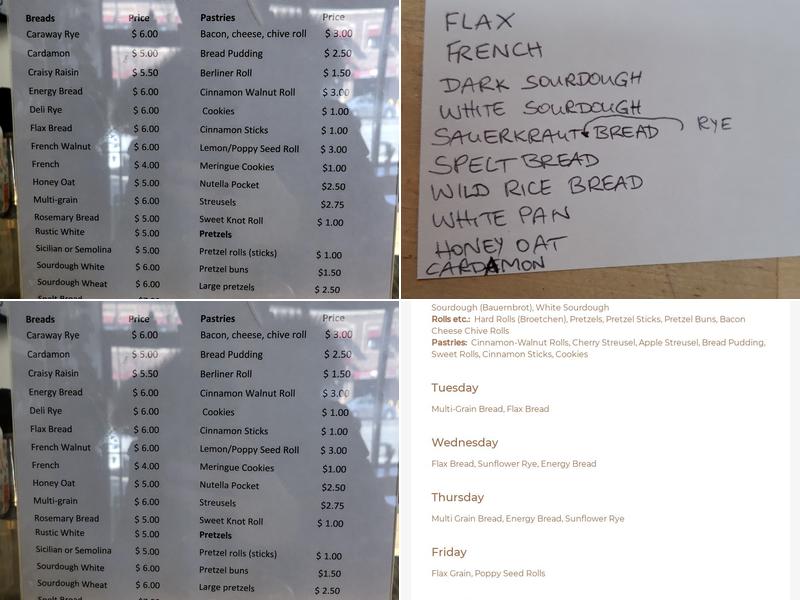 Breads Price Pastries Price
Caraway Rye $ 6.00 Bacon, cheese, chive roll $ 3.00
Cardamon $ 5.00 Bread Pudding $ 2.50
Craisy Raisin $ 5.50 Berliner Roll $ 1.50
Energy Bread $ 6.00 Cinnamon Walnut Roll $ 3.00
Deli Rye $ 6.00 Cookies $ 1.00
Flax Bread $ 6.00 Cinnamon Sticks $ 1.00
French Walnut $ 6.00 Lemon/Poppy Seed Roll $ 3.00
French $ 4.00 Meringue Cookies $1.00
Honey Oat $ 5.00 Nutella Pocket $2.50
Multi-grain $ 6.00 Streusels $2.75
Rosemary Bread $ 5.00 Sweet Knot Roll $ 1.00
Rustic White $ 5.00 Pretzels
Sicilian or Semolina $ 5.00 Pretzel rolls (sticks) $ 1.00
Sourdough White $ 6.00 Pretzel buns $1.50
Sourdough Wheat $ 6.00 Large pretzels $ 2.50
Spelt Bread
FLAX
FRENCH
DARK SOURDOUGH
WHITE SOURDOUGH
SAUERKRAUT BREAD RYE
SPELT BREAD
WILD RICE BREAD
WHITE PAN
HONEY OAT
CARDAMON
Breads Price Pastries Price
Caraway Rye $ 6.00 Bacon, cheese, chive roll $ 3.00
Cardamon $ 5.00 Bread Pudding $ 2.50
Craisy Raisin $ 5.50 Berliner Roll $ 1.50
Energy Bread $ 6.00 Cinnamon Walnut Roll $ 3.00
Deli Rye $ 6.00 Cookies $ 1.00
Flax Bread $ 6.00 Cinnamon Sticks $ 1.00
French Walnut $ 6.00 Lemon/Poppy Seed Roll $ 3.00
French $ 4.00 Meringue Cookies $1.00
Honey Oat $ 5.00 Nutella Pocket $2.50
Multi-grain $ 6.00 Streusels $2.75
Rosemary Bread $ 5.00 Sweet Knot Roll $ 1.00
Rustic White $ 5.00 Pretzels
Sicilian or Semolina $ 5.00 Pretzel rolls (sticks) $ 1.00
Sourdough White $ 6.00 Pretzel buns $1.50
Sourdough Wheat $ 6.00 Large pretzels $ 2.50
Spelt Bread
Sourdough (Bauernbrot), White Sourdough
Rolls etc.: Hard Rolls (Broetchen), Pretzels, Pretzel Sticks, Pretzel Buns, Bacon
Cheese Chive Rolls
Pastries: Cinnamon-Walnut Rolls, Cherry Streusel, Apple Streusel, Bread Pudding,
Sweet Rolls, Cinnamon Sticks, Cookies
Tuesday
Multi-Grain Bread, Flax Bread
Wednesday
Flax Bread, Sunflower Rye, Energy Bread
Thursday
Multi Grain Bread, Energy Bread, Sunflower Rye
Friday
Flax Grain, Poppy Seed Rolls